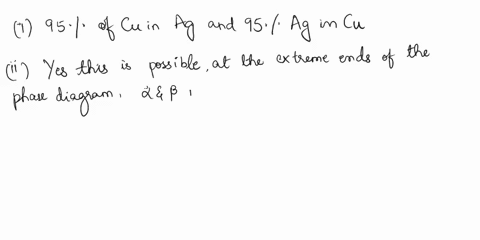 (i) 95.% of Cu in Ag and 95% Ag in Cu
(ii) Yes this is possible, at the extreme ends of the
phase diagram, α & β ,